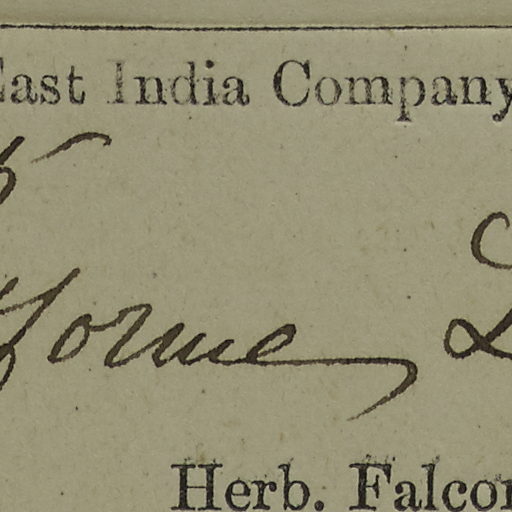 East India Company
5
forme, L
Herb. Falcon